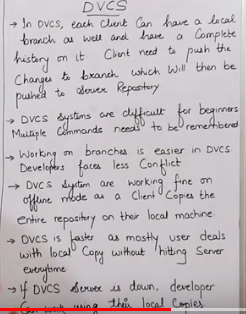 DVCS
→ In DVCS, each client Can have a local
branch as well and have a Complete
history on it Client need to push the
Changes to branch which Will then be
pushed to Server Repository
→ DVCS Systems are difficult for beginners
Multiple Commands needs to be remembered
→ Working on branches is easier in DVCS
Developers faces less Conflict
→ DVCS System are working fine on
offline mode as a Client Copies the
entire repository on their local machine
→ DVCS is faster as mostly user deals
with local Copy without hitting Server
everytime
→ If DVCS Server is down, developer
Can work using their local Copies